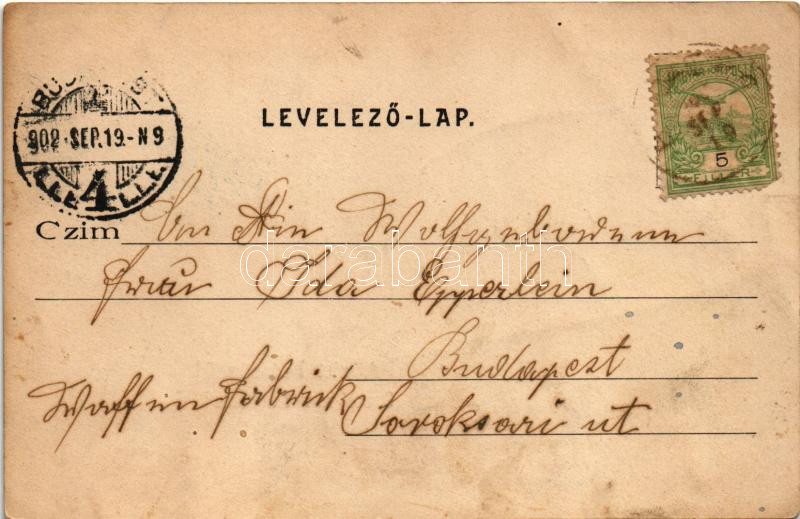 BUDAPEST
902 SEP.19.-N9
4
LEVELEZŐ-LAP.
MAGYAR KIR. POSTA
5
FILLÉR
Czim An Die Wolfgeborenne
Frau Ida Epperlein
Budapest
Waffen Fabrick Soroksari ut
darabanth